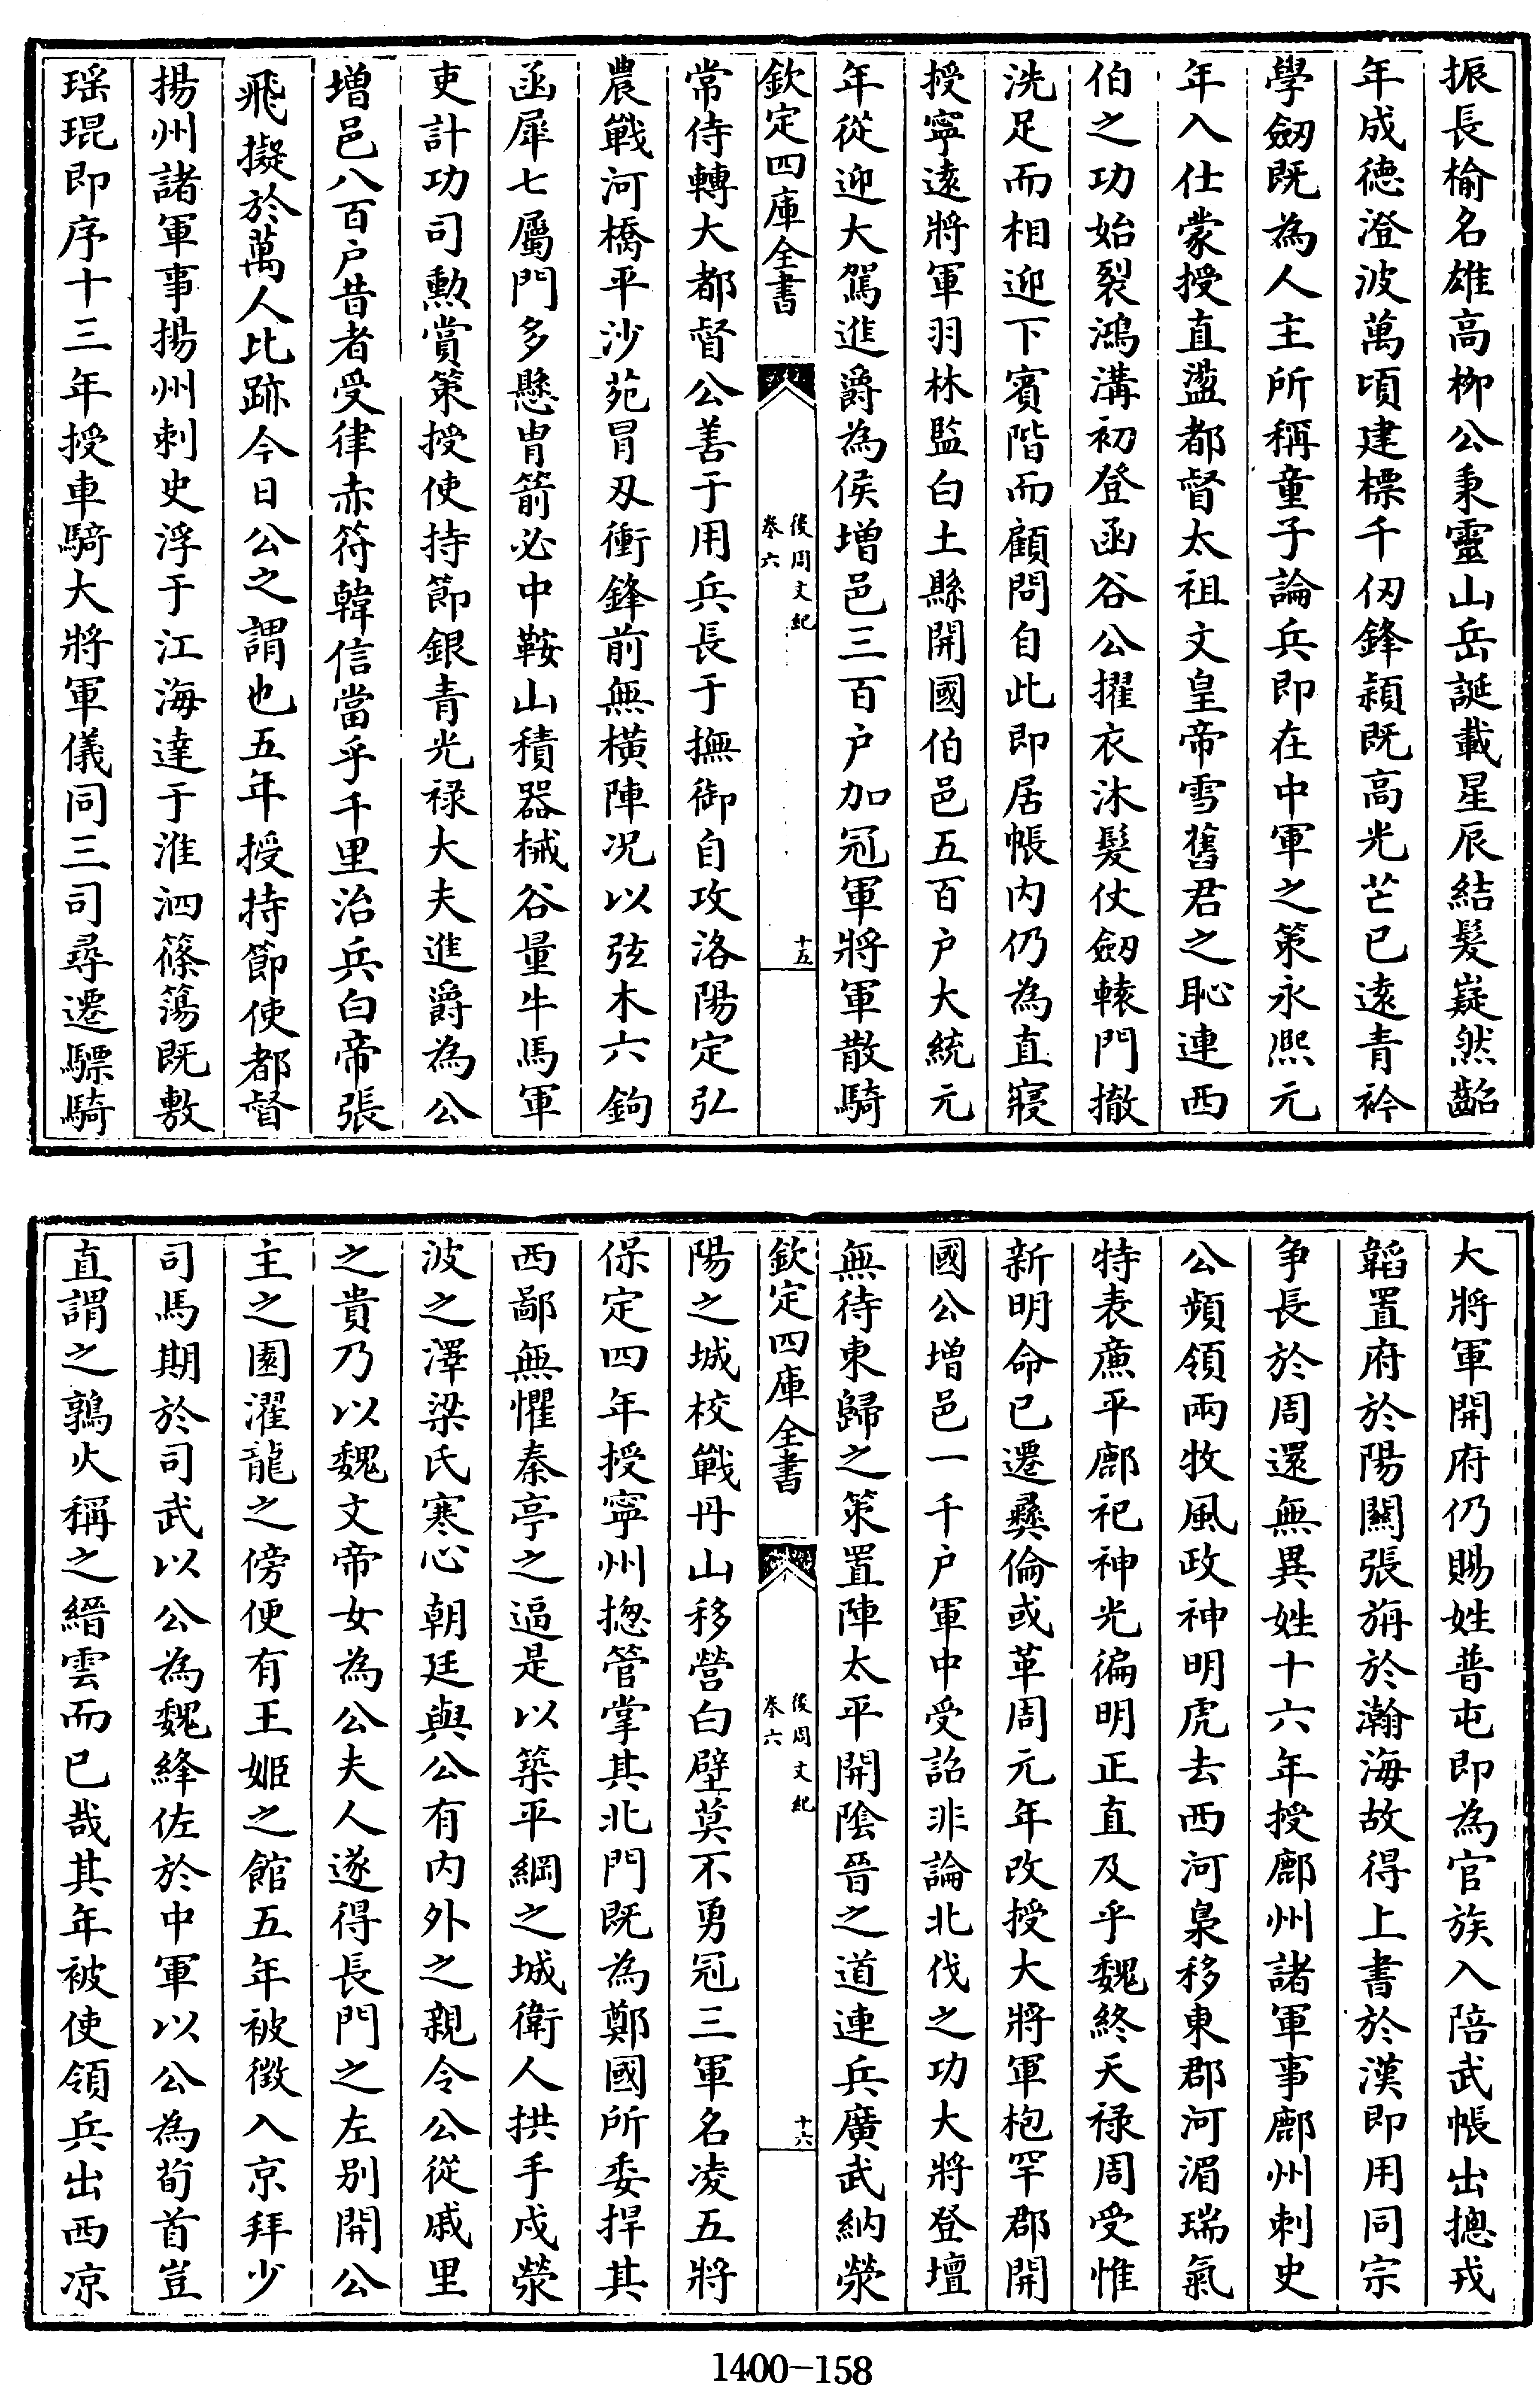 振長榆名雄高柳公秉靈山岳誕載星辰結髮嶷然齠
年成德澄波萬頃建標千仞鋒穎既高光芒已遠青衿
學劒既為人主所稱童子論兵即在中軍之策永熈元
年入仕蒙授直盪都督太祖文皇帝雪舊君之恥連西
伯之功始裂鴻溝初登函谷公擢衣沐髮仗劒轅門撤
洗足而相迎下賓階而顧問自此即居帳内仍為直寢
授寧逺將軍羽林監白土縣開國伯邑五百户大統元
年從迎大駕進爵為侯増邑三百户加冠軍將軍散騎
欽定四庫全書
後周文紀
卷六
十五
常侍轉大都督公善于用兵長于撫御自攻洛陽定弘
農戰河橋平沙苑冒刄衝鋒前無横陣况以弦木六鈎
函犀七屬門多懸胄箭必中鞍山積器械谷量牛馬軍
吏計功司勲賞策授使持節銀青光禄大夫進爵為公
増邑八百户昔者受律赤符韓信當乎千里治兵白帝張
飛擬於萬人比跡今日公之謂也五年授持節使都督
揚州諸軍事揚州刺史浮于江海達于淮泗篠簜既敷
瑶琨即序十三年授車騎大將軍儀同三司尋遷驃騎
大將軍開府仍賜姓普屯即為官族入陪武帳出摠戎
韜置府於陽關張旃於瀚海故得上書於漢即用同宗
争長於周還無異姓十六年授鄜州諸軍事鄜州刺史
公頻領兩牧風政神明虎去西河梟移東郡河湄瑞氣
特表廉平鄜祀神光徧明正直及乎魏終天禄周受惟
新明命已遷彛倫或革周元年改授大將軍枹罕郡開
國公増邑一千户軍中受詔非論北伐之功大將登壇
無待東歸之策置陣太平開陰晉之道連兵廣武納滎
欽定四庫全書
後周文紀
卷六
十六
陽之城校戰丹山移營白壁莫不勇冠三軍名凌五將
保定四年授寧州揔管掌其北門既為鄭國所委捍其
西鄙無懼秦亭之逼是以築平綱之城衛人拱手戍滎
波之澤梁氏寒心朝廷與公有内外之親令公從戚里
之貴乃以魏文帝女為公夫人遂得長門之左别開公
主之園濯龍之傍便有王姬之館五年被徴入京拜少
司馬期於司武以公為魏絳佐於中軍以公為荀首豈
直謂之鶉火稱之縉雲而已哉其年被使領兵出西凉
1400-158